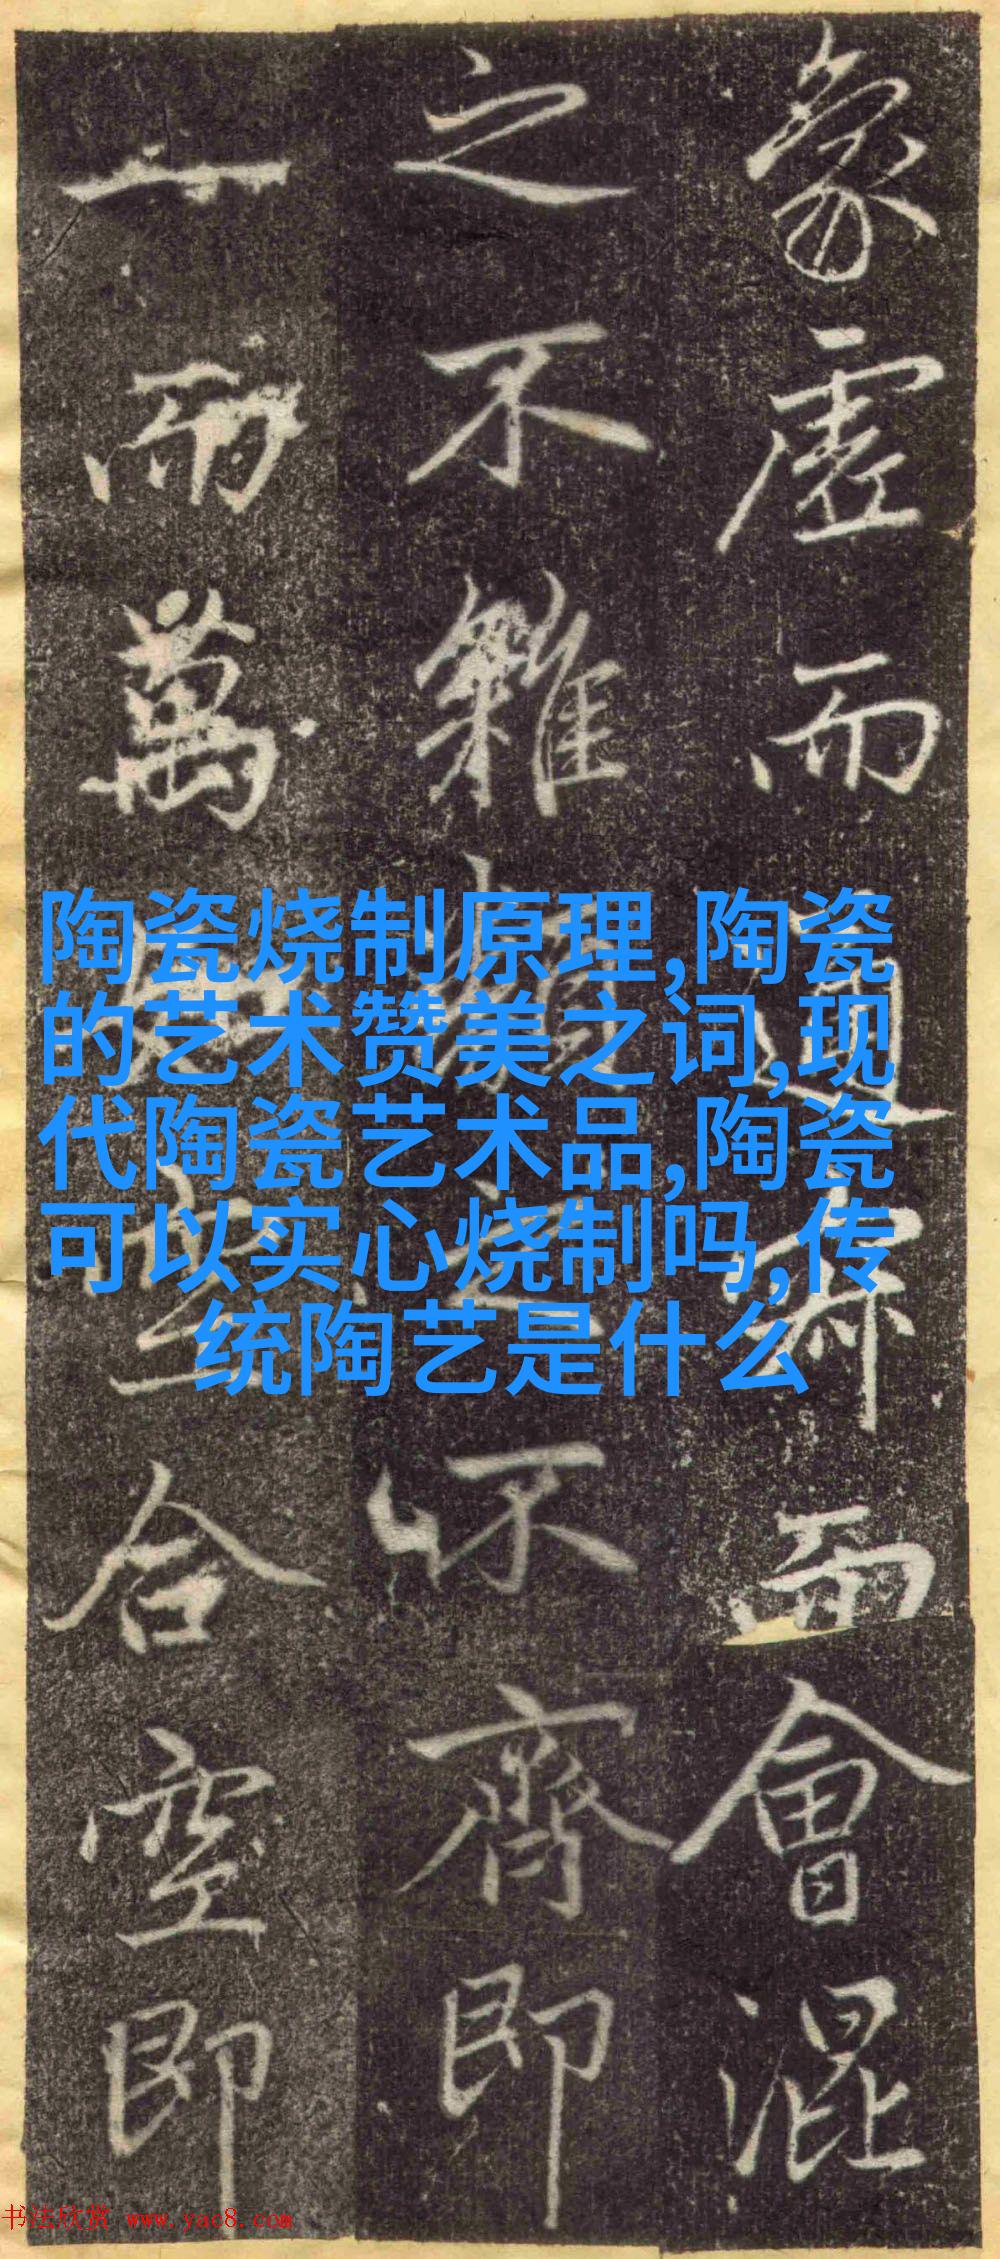 象虛而通而會混
之不雜不齊即
一而萬合空即
陶瓷烧制原理,陶瓷
的艺术赞美之词,现
代陶瓷艺术品,陶瓷
可以实心烧制吗,传
统陶艺是什么
书法欣赏 www.yac8.com